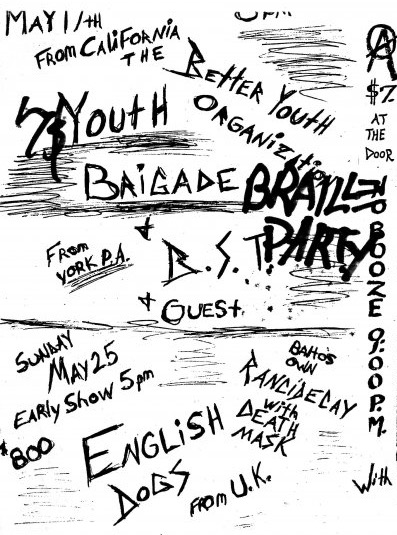 MAY 17TH
8PM
FROM CALIFORNIA
THE
BETTER YOUTH
ORGANIZATION
$7.
AT
THE
DOOR
YOUTH
BRIGADE
BRAILLE
PARTY
NO BOOZE 9:00 P.M.
+
FROM
YORK P.A.
B.S.T.
+ GUEST
SUNDAY
MAY 25
EARLY SHOW 5pm
$8.00
BALTO'S
OWN
RANCID DECAY
with
DEATH
MASK
ENGLISH
DOGS
FROM U.K.
With